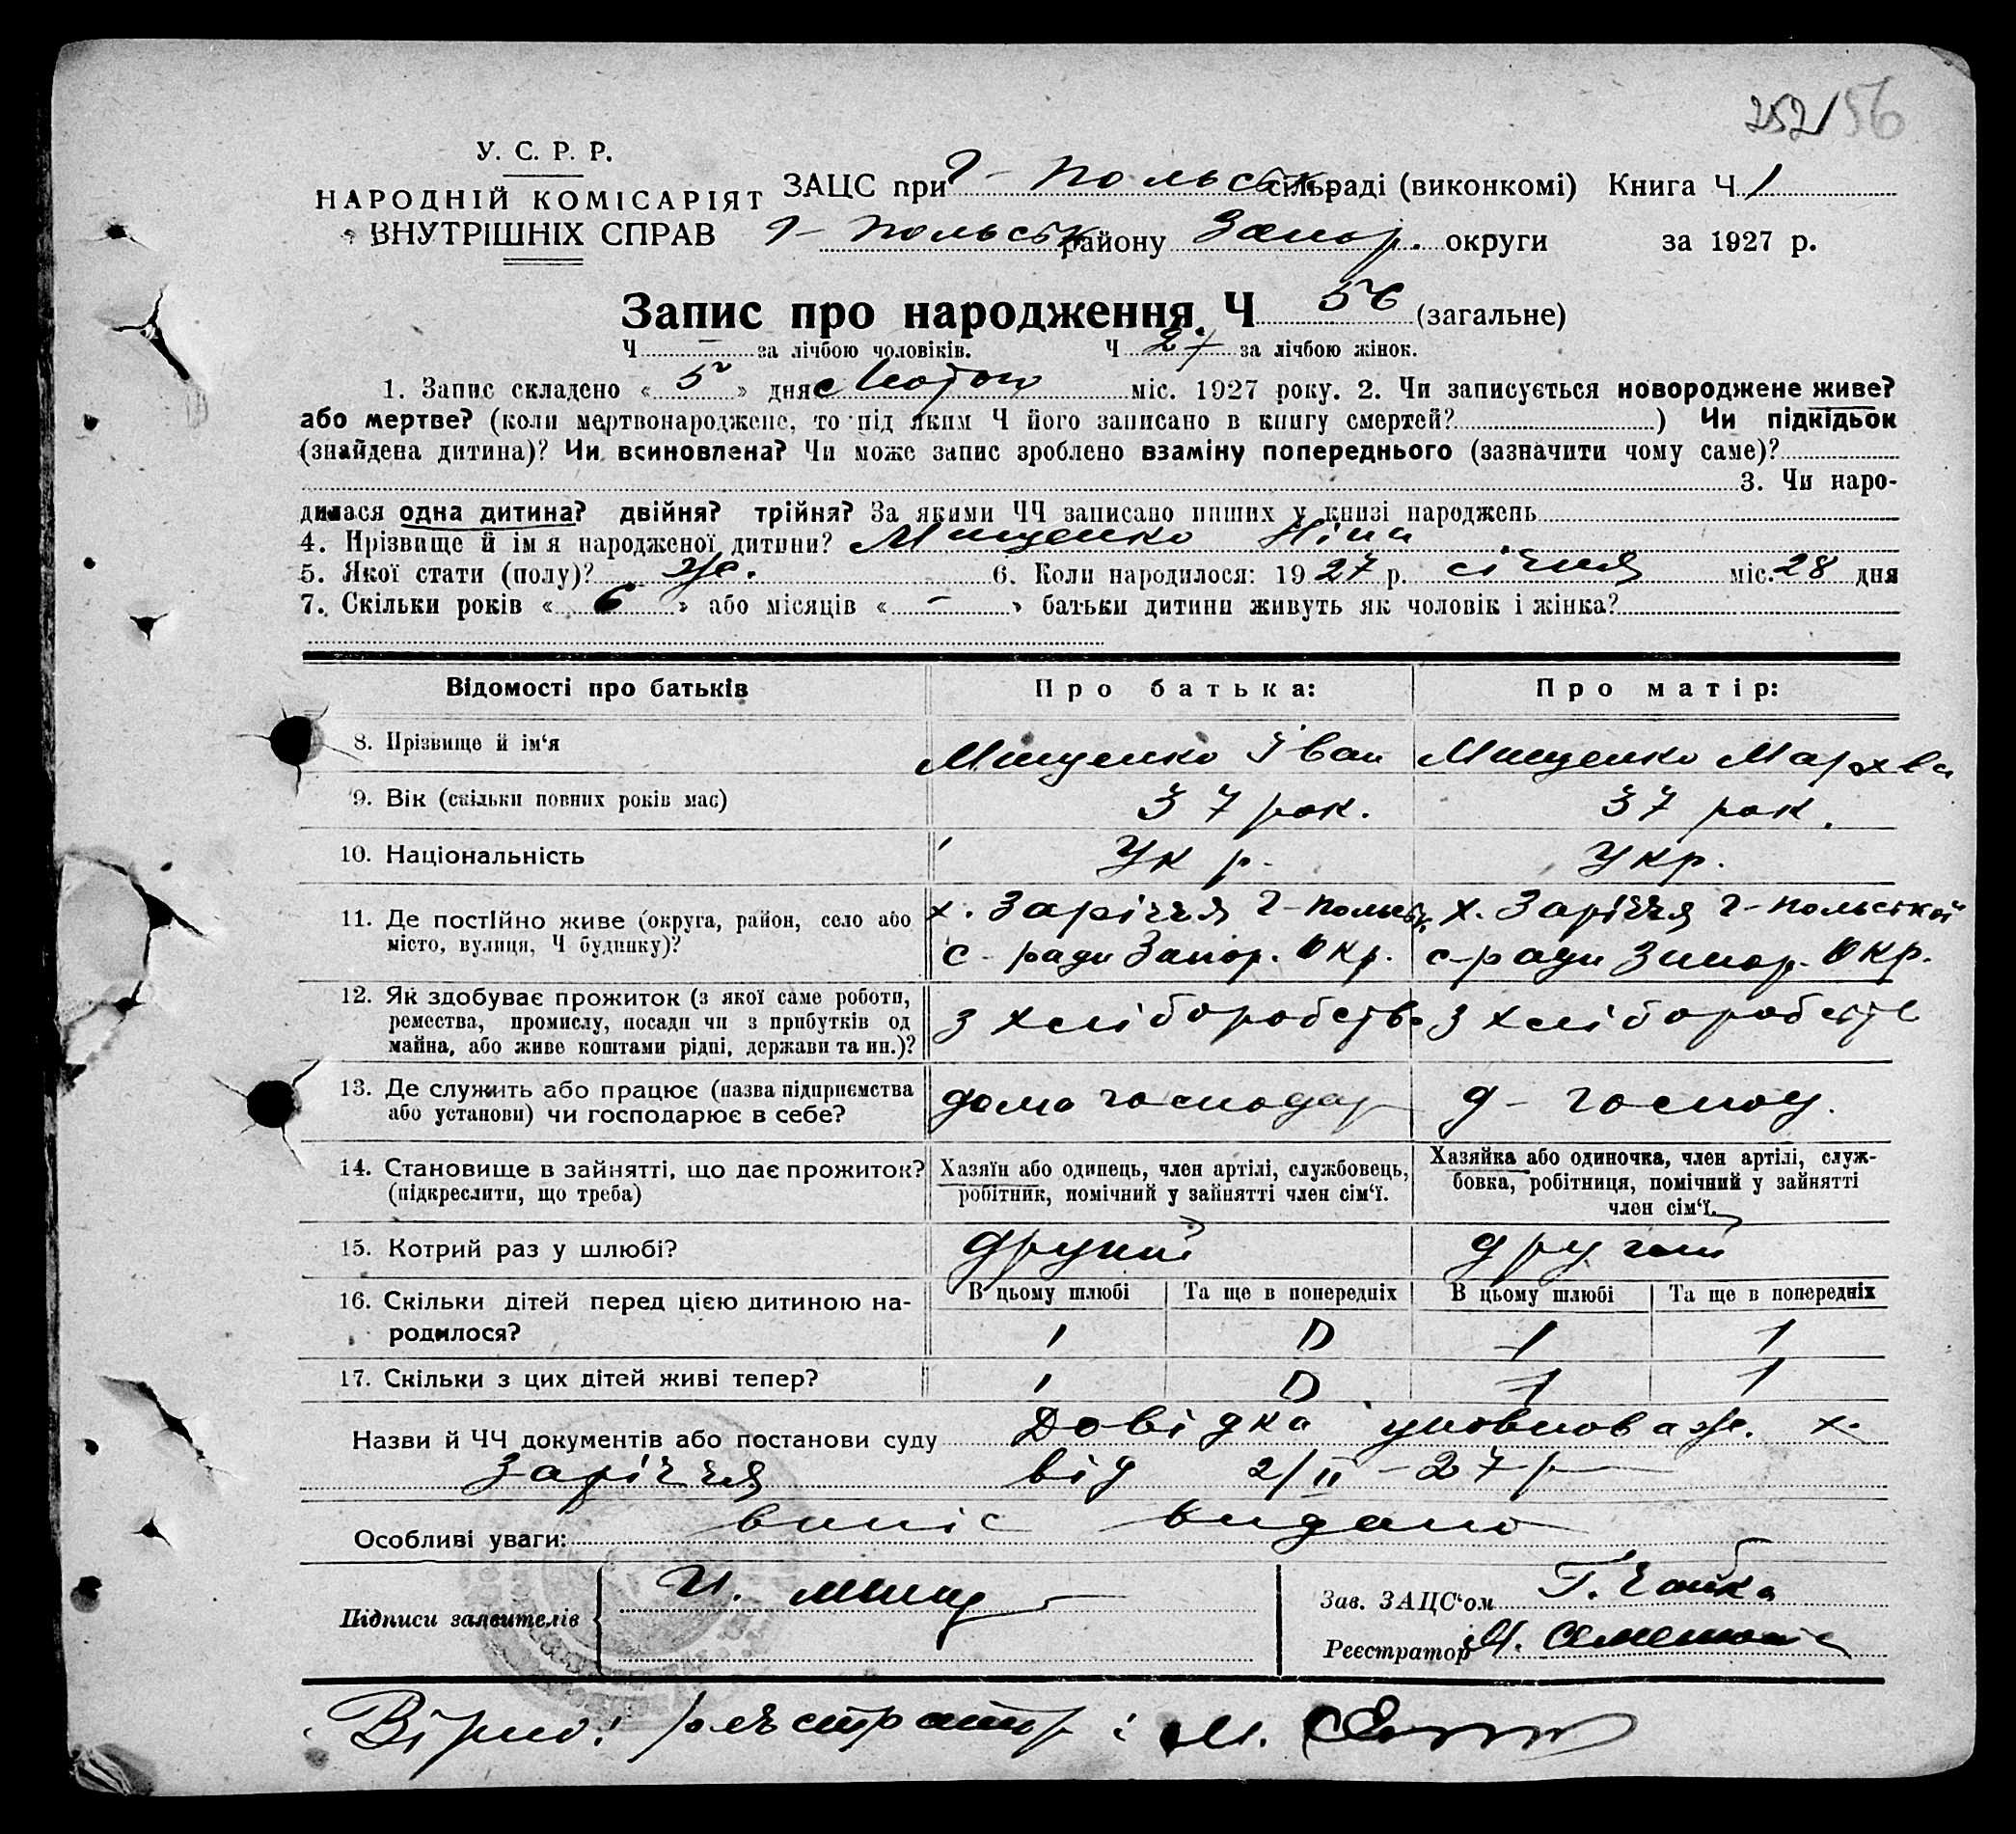 252/56
У. С. Р. Р.
НАРОДНІЙ КОМІСАРІЯТ
ВНУТРІШНІХ СПРАВ
ЗАЦС при Г-Польськ. сільраді (виконкомі) Книга Ч 1
Г-Польськ. району Запор. округи за 1927 р.
Запис про народження Ч 56 (загальне)
Ч – за лічбою чоловіків. Ч 27 за лічбою жінок.
1. Запис складено « 5 » дня Лютого міс. 1927 року. 2. Чи записується новороджене живе?
або мертве? (коли мертвонароджене, то під яким Ч його записано в книгу смертей? ) Чи підкідьок
(знайдена дитина)? Чи всиновлена? Чи може запис зроблено взаміну попереднього (зазначити чому саме)?
3. Чи наро-
дилася одна дитина? двійня? трійня? За якими ЧЧ записано инших у книзі народжень
4. Прізвище й ім'я народженої дитини? Мищенко Ніна
5. Якої стати (полу)? Же. 6. Коли народилося: 1927 р. січня міс. 28 дня
7. Скільки років « 6 » або місяців « – » батьки дитини живуть як чоловік і жінка?
Відомості про батьків Про батька: Про матір:
8. Прізвище й ім'я Мищенко Іван Мищенко Мархва
9. Вік (скільки повних років має) 37 рок. 37 рок.
10. Національність Укр. Укр.
11. Де постійно живе (округа, район, село або х. Заріччя Г-Польськ. х. Заріччя Г-Польської
місто, вулиця, Ч будинку)? с-ради Запор. Окр. с-ради Запор. Окр.
12. Як здобуває прожиток (з якої саме роботи,
ремества, промислу, посади чи з прибутків од з хліборобств з хліборобств
майна, або живе коштами рідні, держави та ин.)?
13. Де служить або працює (назва підприємства дома господар д- господ.
або установи) чи господарює в себе?
14. Становище в зайнятті, що дає прожиток? Хазяїн або одинець, член артілі, службовець, Хазяйка або одиночка, член артілі, служ-
(підкреслити, що треба) робітник, помічний у зайнятті член сім'ї. бовка, робітниця, помічний у зайнятті
член сім'ї.
15. Котрий раз у шлюбі? другий другий
16. Скільки дітей перед цією дитиною на- В цьому шлюбі Та ще в попередніх В цьому шлюбі Та ще в попередніх
родилося? 1 0 1 1
17. Скільки з цих дітей живі тепер? 1 0 1 1
Назви й ЧЧ документів або постанови суду Довідка уповноваж. х.
Заріччя від 2/II – 27 р
Особливі уваги: випіс видано
Підписи заявителів И. Мищ
Зав. ЗАЦС'ом
Реєстратор М.
Вірно: реєстратор: М.